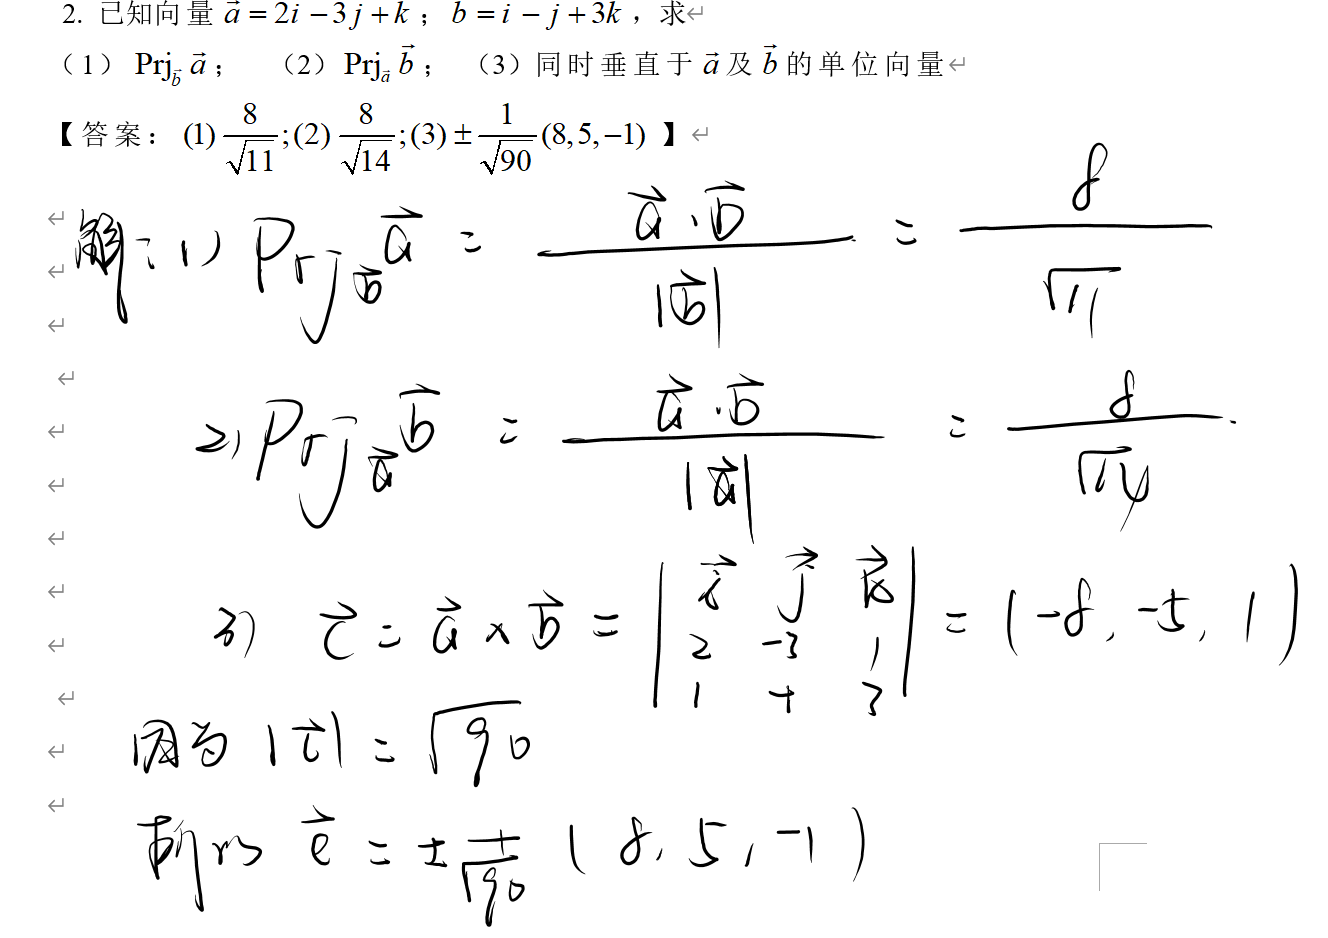 2. 已知向量 a⃗ = 2i − 3j + k ；b⃗ = i − j + 3k ，求↵
（1） Prj_b⃗ a⃗； （2）Prj_a⃗ b⃗； （3）同时垂直于 a⃗ 及 b⃗ 的单位向量↵
【答案： (1) 8/√11 ;(2) 8/√14 ;(3) ± 1/√90 (8,5,−1) 】↵
解：1) Prj_b⃗ a⃗ = a⃗·b⃗ / |b⃗| = 8/√11
2) Prj_a⃗ b⃗ = a⃗·b⃗ / |a⃗| = 8/√14 .
3) c⃗ = a⃗ × b⃗ = | i⃗ j⃗ k⃗ ; 2 -3 1 ; 1 -1 3 | = (-8, -5, 1)
因为 |c⃗| = √90
所以 e⃗ = ± 1/√90 (8, 5, -1)